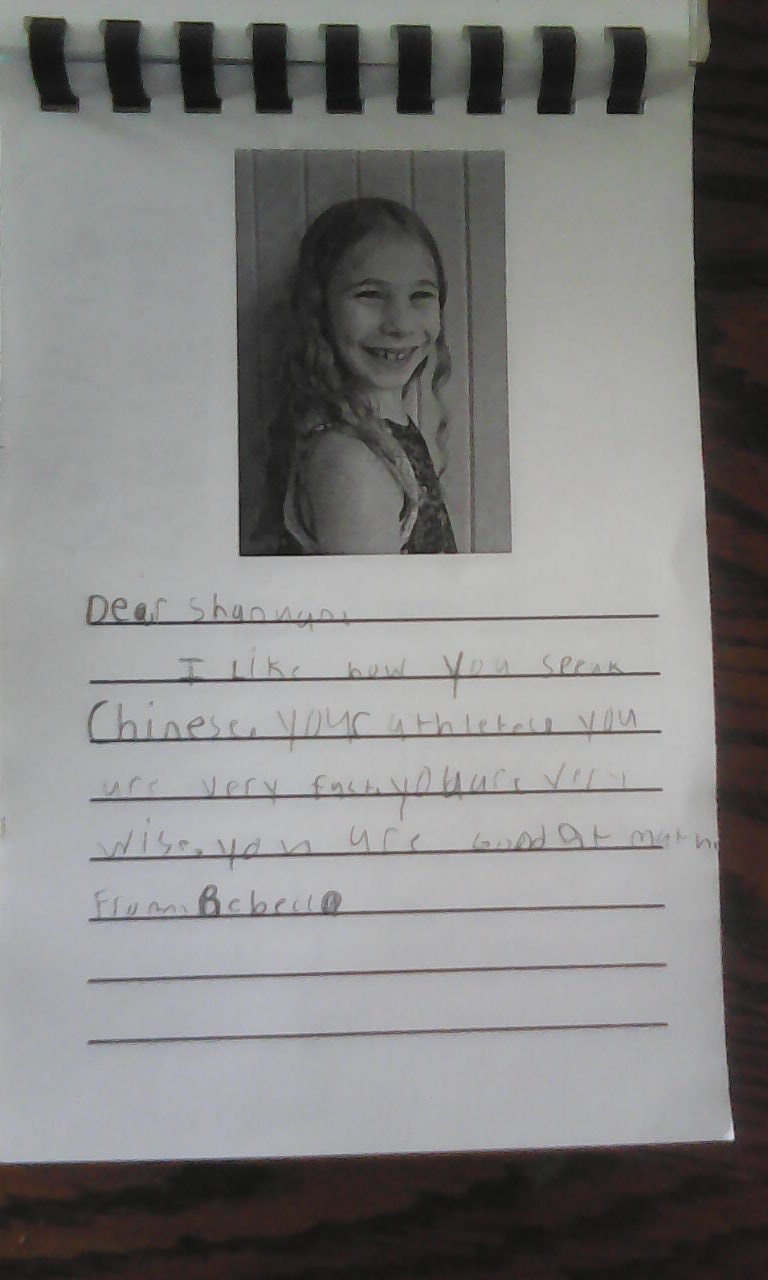 Dear Shannyn,
I Like how you speak
Chinese. your athletece you
are very fast. you are very
wise. you are good at math.
From. Rebecca